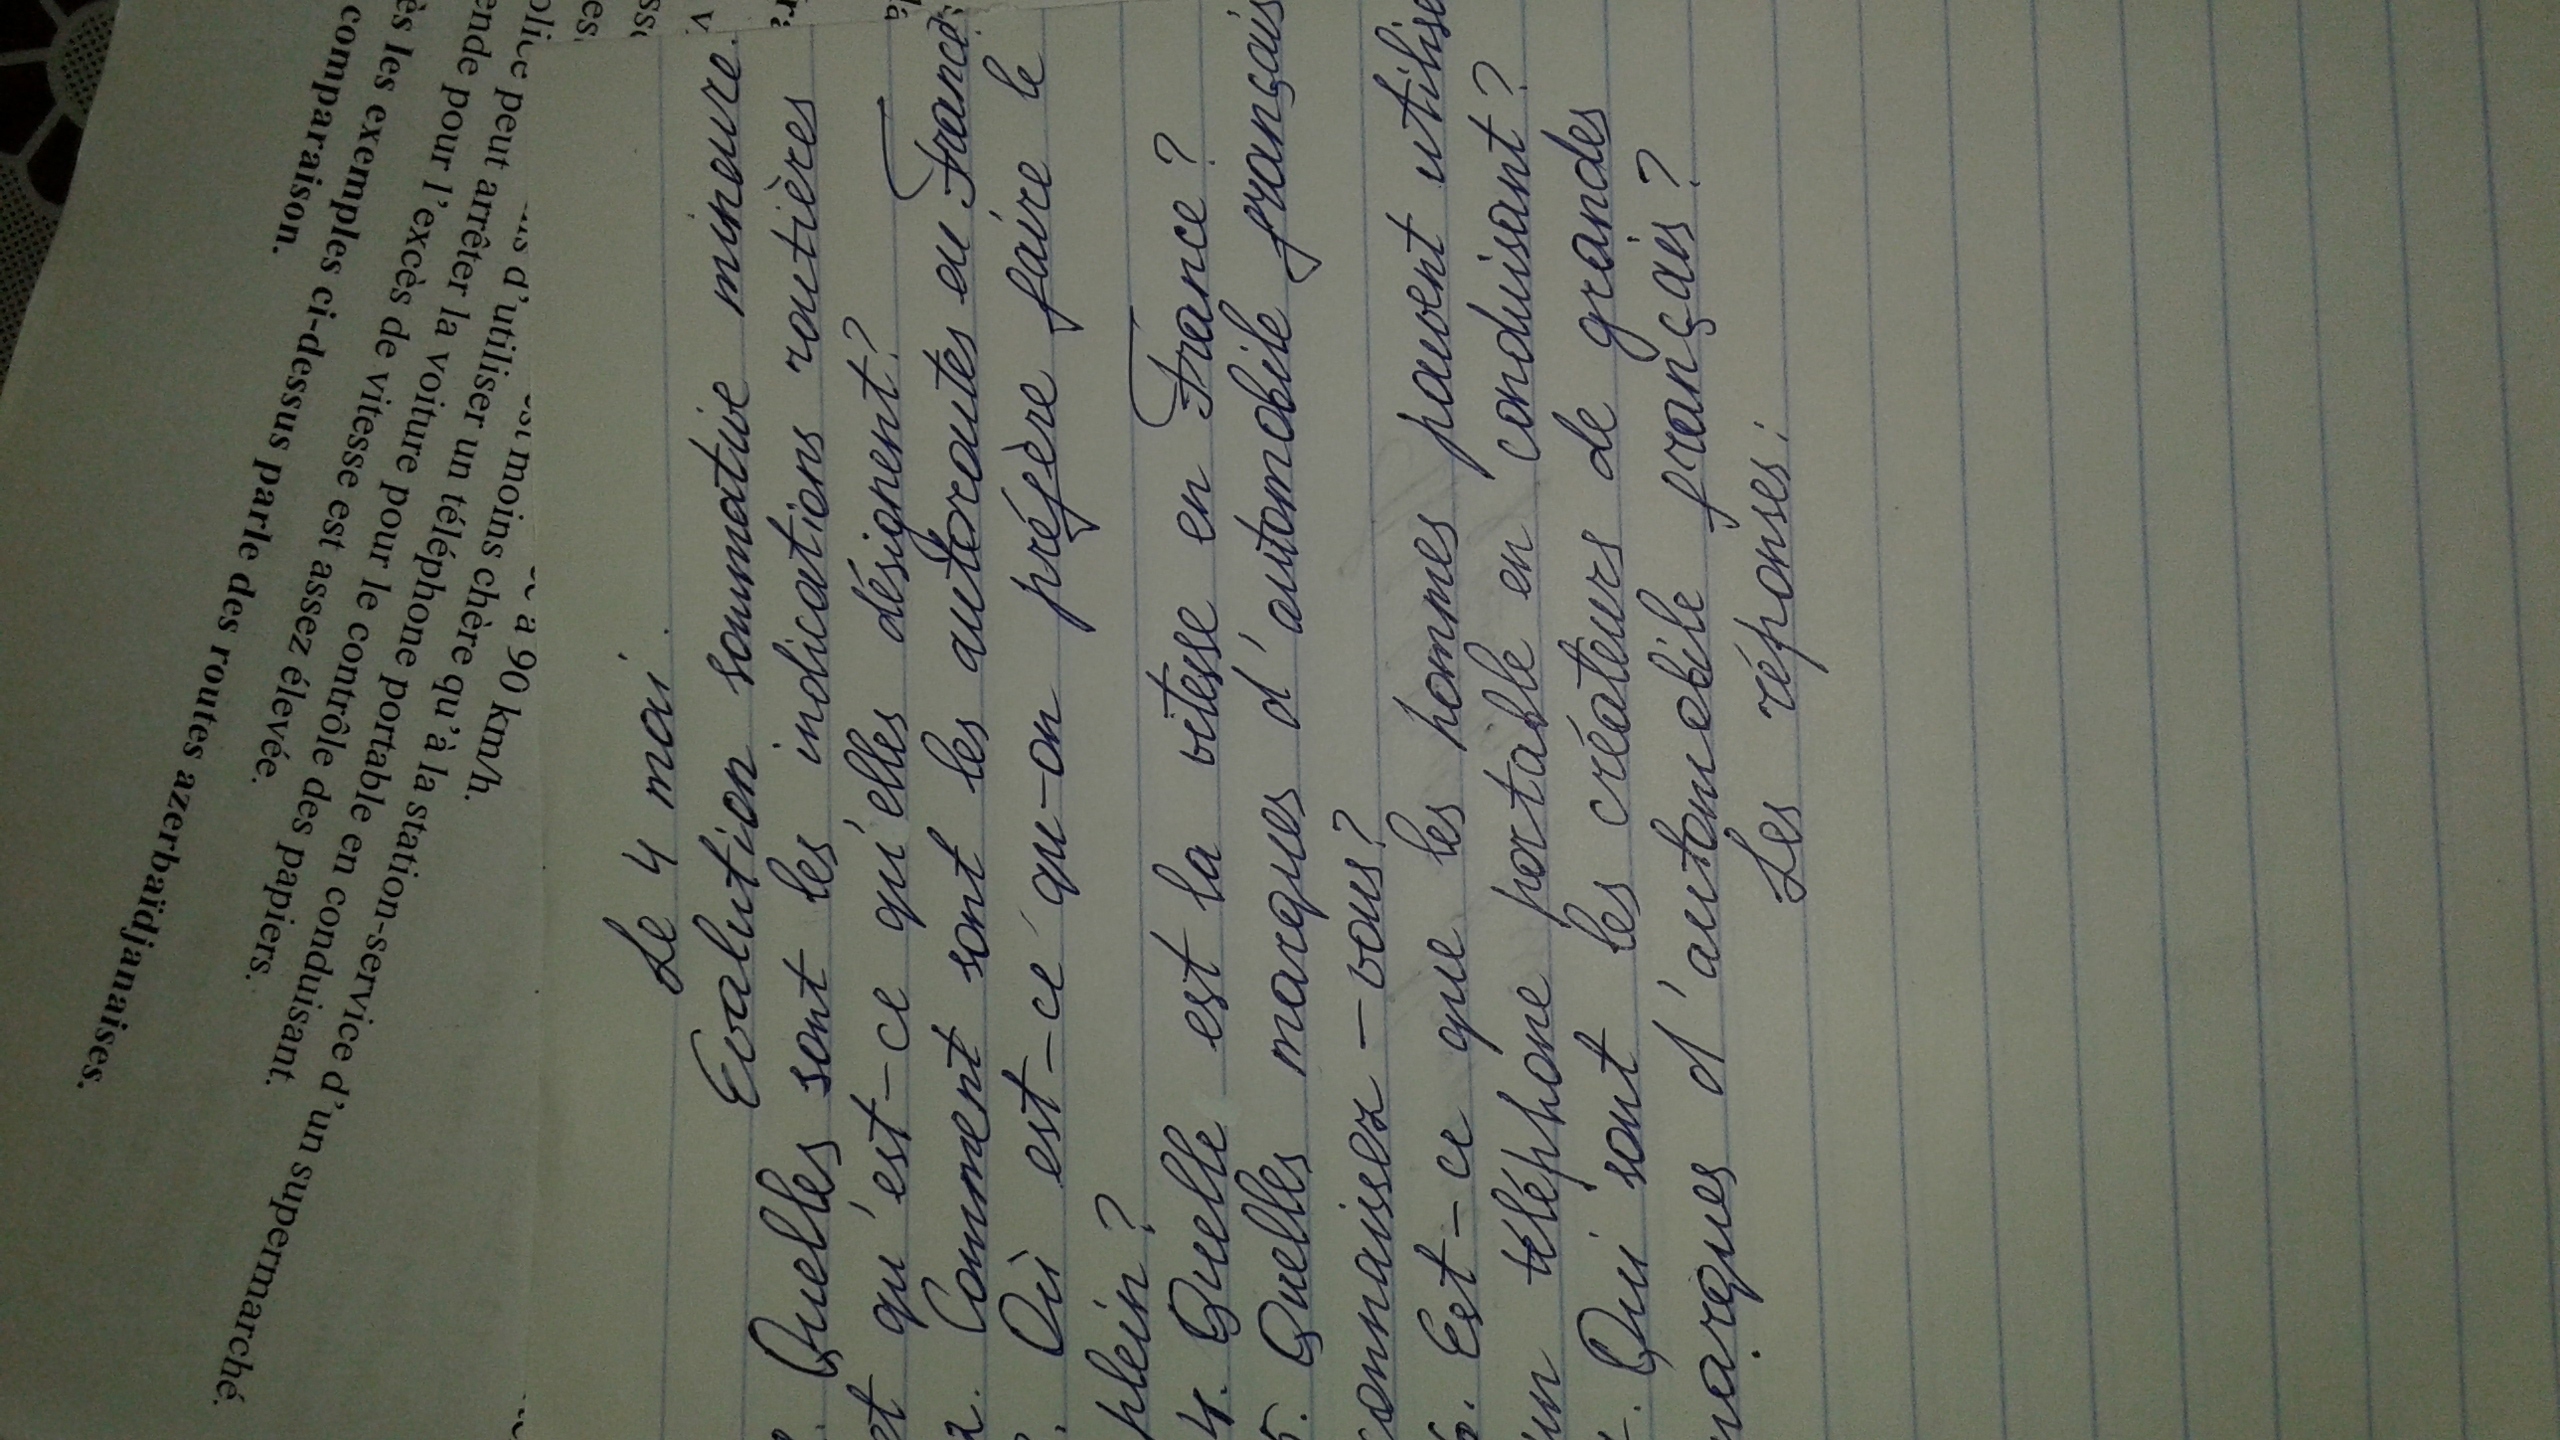 peut arrêter la voiture pour le contrôle des papiers.
pour l'excès de vitesse est assez élevée.
ès les exemples ci-dessus parle des routes azerbaïdjanaises.
comparaison.
moins chère qu'à la station-service d'un supermarché.
d'utiliser un téléphone portable en conduisant.
a 90 km/h.
Le 4 mai.
Evalution sommative mineure.
Quelles sont les indications routières
et qu'est-ce qu'elles désignent?
2. Comment sont les autoroutes en France?
. Où est-ce qu-on préfère faire le
plein?
4. Quelle est la vitesse en France?
5. Quelles marques d'automobile français
connaissez-vous?
6. Est-ce que les hommes pauvent utilise
un téléphone portable en conduisant?
. Qui sont les créateurs de grandes
marques d'automobile français?
Les réponses: